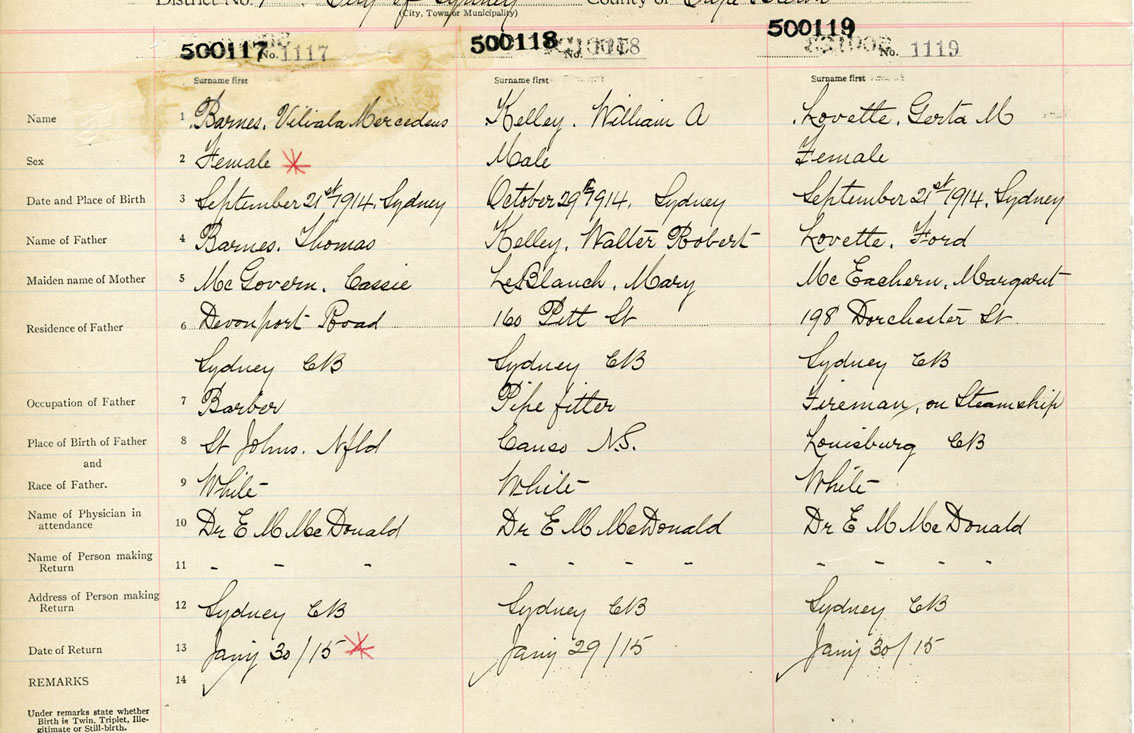 District No. City of Sydney County of Cape Breton
(City, Town or Municipality)
500117 No. 1117 500118 No. 1118 500119 No. 1119
Surname first Surname first Surname first
Name 1 Barnes. Vilvala Mercedeus Kelley. William A Lovette, Gerta M
Sex 2 Female * Male Female
Date and Place of Birth 3 September 21st 1914. Sydney October 29th 1914. Sydney September 21st 1914. Sydney
Name of Father 4 Barnes. Thomas Kelley, Walter Robert Lovette, Ford
Maiden name of Mother 5 McGovern. Cassie LeBlanch, Mary McEachern, Margaret
Residence of Father 6 Devonport Road 160 Pitt St 198 Dorchester St.
Sydney CB Sydney CB Sydney CB
Occupation of Father 7 Barber Pipe fitter Fireman, on Steamship
Place of Birth of Father 8 St Johns. Nfld Canso N.S. Louisburg CB
and
Race of Father. 9 White White White
Name of Physician in attendance 10 Dr E M McDonald Dr E M McDonald Dr E M McDonald
Name of Person making Return 11 - - - - - - - - - - -
Address of Person making Return 12 Sydney CB Sydney CB Sydney CB
Date of Return 13 Jany 30/15 * Jany 29/15 Jany 30/15
REMARKS 14
Under remarks state whether
Birth is Twin, Triplet, Ille-
gitimate or Still-birth.